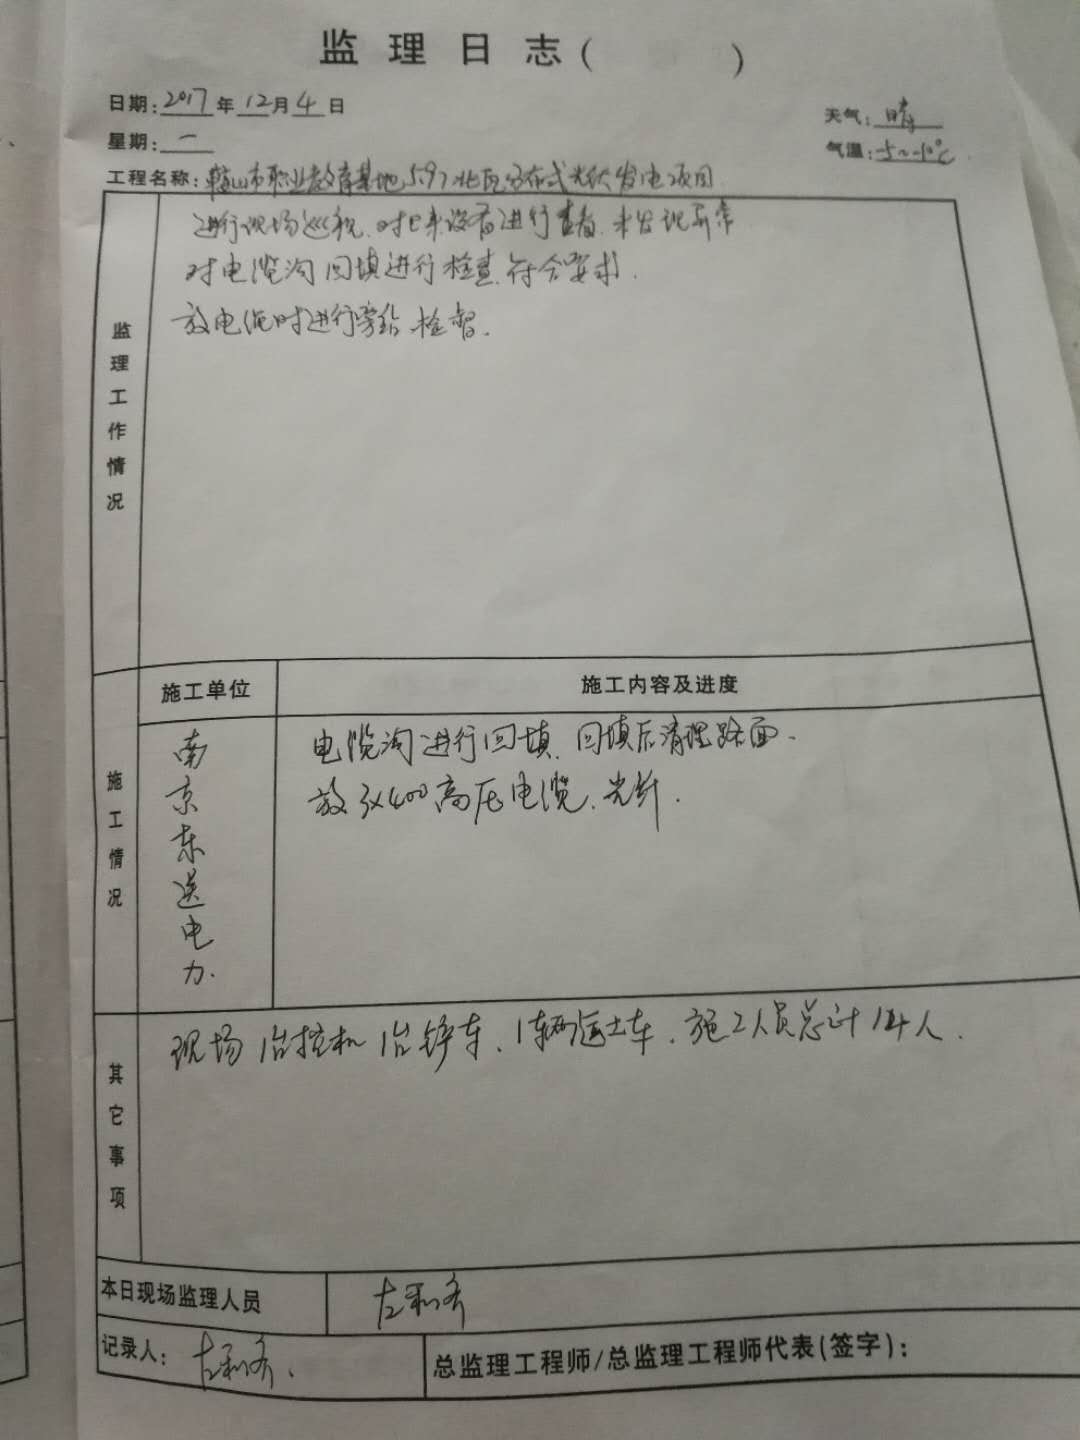 监理日志（ ）
日期：2017年12月4日
天气：晴
星期：一
气温：-5~-10℃
工程名称：鞍山市职业教育基地5.97北区分布式光伏发电项目
监理工作情况
进行现场巡视，对已来设备进行查看，未发现异常
对电缆沟回填进行检查，符合要求．
放电缆时进行旁站、检督．
施工情况
施工单位
施工内容及进度
南京东送电力．
电缆沟进行回填，回填后清理路面．
放3x400高压电缆、光纤．
其它事项
现场1台挖机 1台铲车、1辆运土车．施工人员总计14人．
本日现场监理人员
记录人：
总监理工程师/总监理工程师代表（签字）：